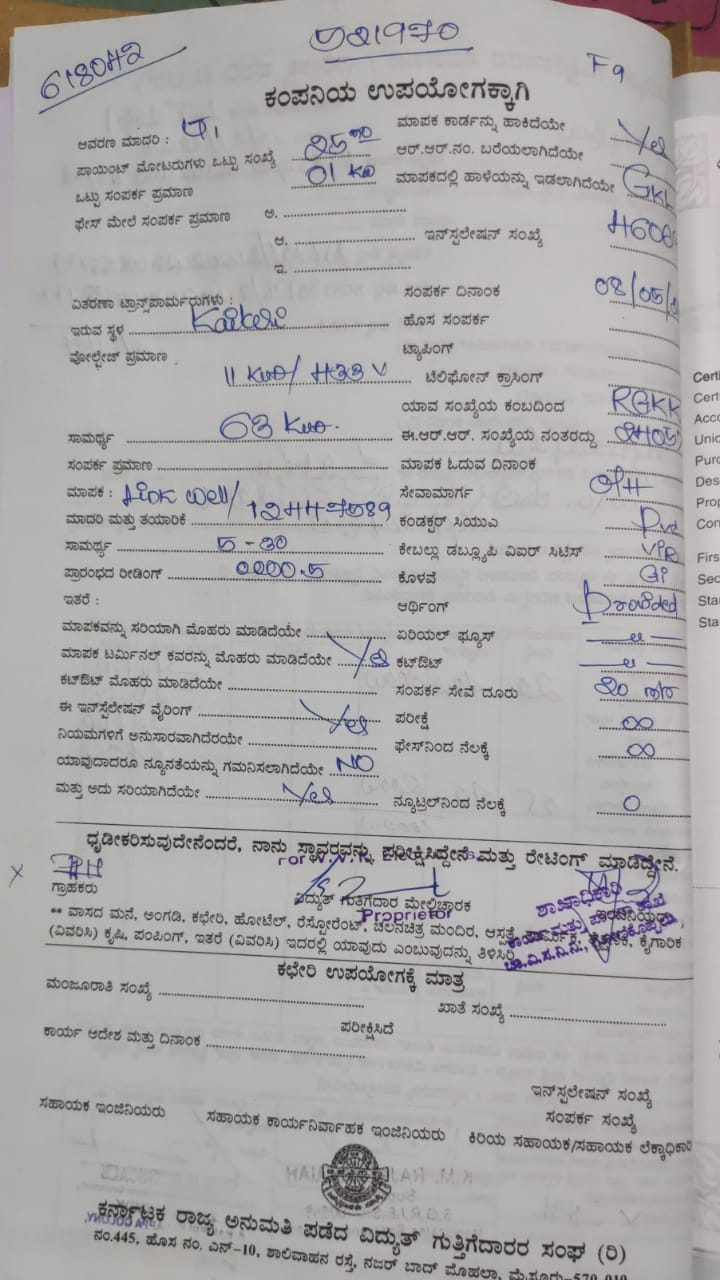 618042
F9
ಕಂಪನಿಯ ಉಪಯೋಗಕ್ಕಾಗಿ
ಆವರಣ ಮಾದರಿ :
ಮಾಪಕ ಕಾರ್ಡನ್ನು ಹಾಕಿದೆಯೇ Yes
ಪಾಯಿಂಟ್ ಮೋಟರುಗಳು ಒಟ್ಟು ಸಂಖ್ಯೆ
ಆರ್.ಆರ್.ನಂ. ಬರೆಯಲಾಗಿದೆಯೇ
ಒಟ್ಟು ಸಂಪರ್ಕ ಪ್ರಮಾಣ 01
ಮಾಪಕದಲ್ಲಿ ಹಾಳೆಯನ್ನು ಇಡಲಾಗಿದೆಯೇ
ಫೇಸ್ ಮೇಲೆ ಸಂಪರ್ಕ ಪ್ರಮಾಣ ಅ.
ಆ. ಇನ್‌ಸ್ಟಲೇಷನ್ ಸಂಖ್ಯೆ
ಇ.
ವಿತರಣಾ ಟ್ರಾನ್ಸ್‌ಪಾರ್ಮರುಗಳು :
ಸಂಪರ್ಕ ದಿನಾಂಕ 08/05/
ಇರುವ ಸ್ಥಳ
ಹೊಸ ಸಂಪರ್ಕ
ವೋಲ್ಟೇಜ್ ಪ್ರಮಾಣ
ಟ್ಯಾಪಿಂಗ್
ಟೆಲಿಫೋನ್ ಕ್ರಾಸಿಂಗ್
ಯಾವ ಸಂಖ್ಯೆಯ ಕಂಬದಿಂದ
ಸಾಮರ್ಥ್ಯ 63
ಈ.ಆರ್.ಆರ್. ಸಂಖ್ಯೆಯ ನಂತರದ್ದು
ಸಂಪರ್ಕ ಪ್ರಮಾಣ
ಮಾಪಕ ಓದುವ ದಿನಾಂಕ
ಮಾಪಕ : Link well/
ಸೇವಾಮಾರ್ಗ O/H
ಮಾದರಿ ಮತ್ತು ತಯಾರಿಕೆ 12447589
ಕಂಡಕ್ಟರ್ ಸಿಯುಎ
ಸಾಮರ್ಥ್ಯ 5-30
ಕೇಬಲ್ಲು ಡಬ್ಲ್ಯೂಪಿ ವಿಐರ್ ಸಿಟಿಸ್
ಪ್ರಾರಂಭದ ರೀಡಿಂಗ್ 0000.5
ಕೊಳವೆ GI
ಇತರೆ :
ಆರ್ಥಿಂಗ್ Provided
ಮಾಪಕವನ್ನು ಸರಿಯಾಗಿ ಮೊಹರು ಮಾಡಿದೆಯೇ
ಏರಿಯಲ್ ಫ್ಯೂಸ್
ಮಾಪಕ ಟರ್ಮಿನಲ್ ಕವರನ್ನು ಮೊಹರು ಮಾಡಿದೆಯೇ Yes
ಕಟ್‌ಔಟ್
ಕಟ್‌ಔಟ್ ಮೊಹರು ಮಾಡಿದೆಯೇ
ಸಂಪರ್ಕ ಸೇವೆ ದೂರು 20
ಈ ಇನ್‌ಸ್ಟಲೇಷನ್ ವೈರಿಂಗ್ Yes
ಪರೀಕ್ಷೆ ∞
ನಿಯಮಗಳಿಗೆ ಅನುಸಾರವಾಗಿದೆರಯೇ
ಫೇಸ್‌ನಿಂದ ನೆಲಕ್ಕೆ ∞
ಯಾವುದಾದರೂ ನ್ಯೂನತೆಯನ್ನು ಗಮನಿಸಲಾಗಿದೆಯೇ NO
ಮತ್ತು ಅದು ಸರಿಯಾಗಿದೆಯೇ Yes
ನ್ಯೂಟ್ರಲ್‌ನಿಂದ ನೆಲಕ್ಕೆ 0
ಧೃಡೀಕರಿಸುವುದೇನೆಂದರೆ, ನಾನು ಸ್ಥಾವರವನ್ನು ಪರೀಕ್ಷಿಸಿದ್ದೇನೆ ಮತ್ತು ರೇಟಿಂಗ್ ಮಾಡಿದ್ದೇನೆ.
ಗ್ರಾಹಕರು
ವಿದ್ಯುತ್ ಗುತ್ತಿಗೆದಾರ ಮೇಲ್ವಿಚಾರಕ
Proprietor
ಶಾಖಾಧಿಕಾರಿ
** ವಾಸದ ಮನೆ, ಅಂಗಡಿ, ಕಛೇರಿ, ಹೋಟೆಲ್, ರೆಸ್ಟೋರೆಂಟ್, ಚಲನಚಿತ್ರ ಮಂದಿರ, ಆಸ್ಪತ್ರೆ, ಧಾರ್ಮಿಕ, ಶೈಕ್ಷಣಿಕ, ಕೈಗಾರಿಕ
(ವಿವರಿಸಿ) ಕೃಷಿ, ಪಂಪಿಂಗ್, ಇತರೆ (ವಿವರಿಸಿ) ಇದರಲ್ಲಿ ಯಾವುದು ಎಂಬುವುದನ್ನು ತಿಳಿಸಿರಿ
ಕಛೇರಿ ಉಪಯೋಗಕ್ಕೆ ಮಾತ್ರ
ಮಂಜೂರಾತಿ ಸಂಖ್ಯೆ
ಖಾತೆ ಸಂಖ್ಯೆ
ಪರೀಕ್ಷಿಸಿದೆ
ಕಾರ್ಯ ಆದೇಶ ಮತ್ತು ದಿನಾಂಕ
ಇನ್‌ಸ್ಟಲೇಷನ್ ಸಂಖ್ಯೆ
ಸಂಪರ್ಕ ಸಂಖ್ಯೆ
ಸಹಾಯಕ ಇಂಜಿನಿಯರು ಸಹಾಯಕ ಕಾರ್ಯನಿರ್ವಾಹಕ ಇಂಜಿನಿಯರು ಕಿರಿಯ ಸಹಾಯಕ/ಸಹಾಯಕ ಲೆಕ್ಕಾಧಿಕಾರಿ
ಕರ್ನಾಟಕ ರಾಜ್ಯ ಅನುಮತಿ ಪಡೆದ ವಿದ್ಯುತ್ ಗುತ್ತಿಗೆದಾರರ ಸಂಘ (ರಿ)
ನಂ.445, ಹೊಸ ನಂ. ಎನ್-10, ಶಾಲಿವಾಹನ ರಸ್ತೆ, ನಜರ್ ಬಾದ್ ಮೊಹಲ್ಲಾ, ಮೈಸೂರು-570 010